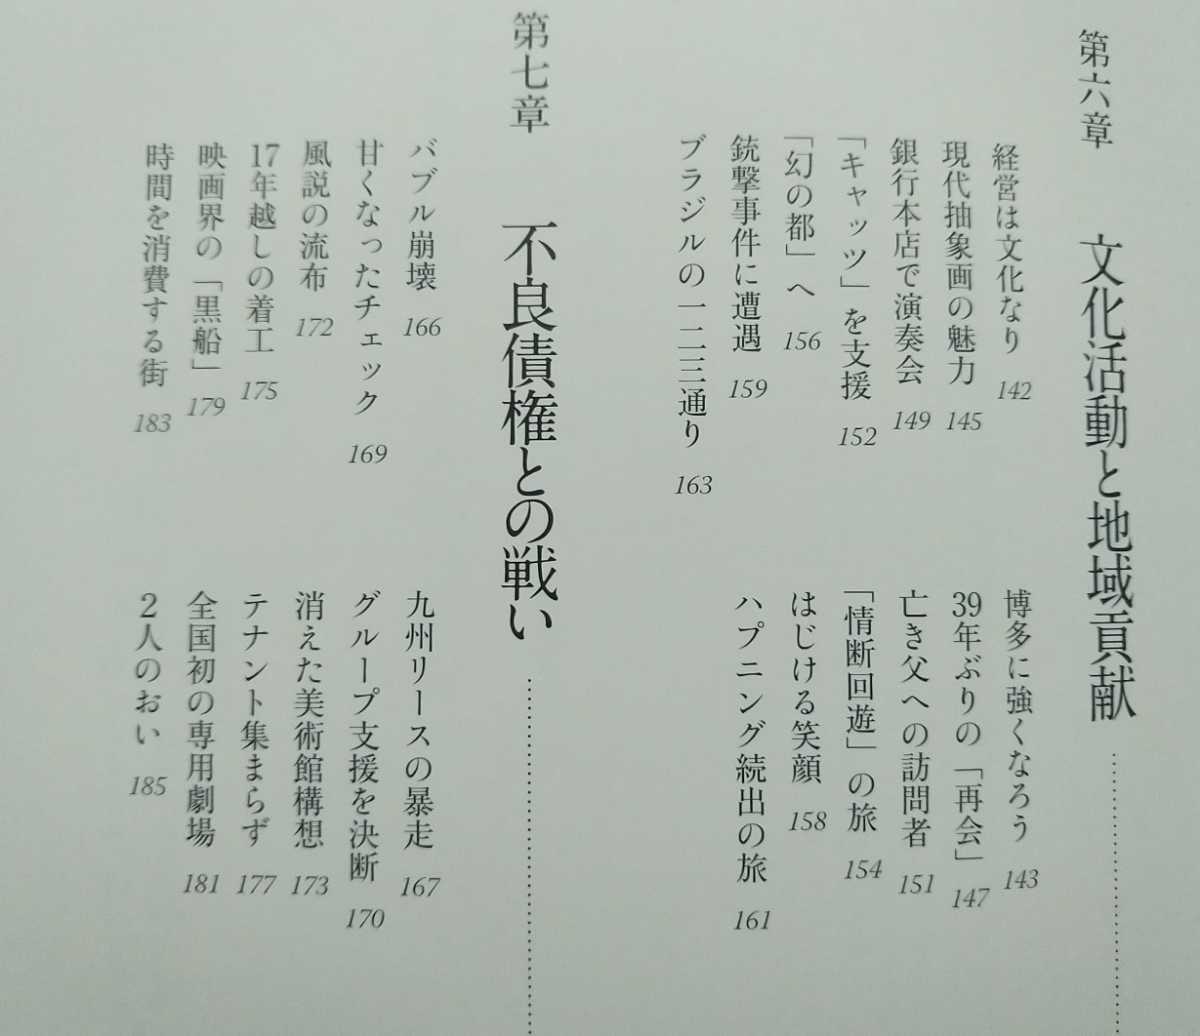 第六章 文化活動と地域貢献
経営は文化なり 142
博多に強くなろう 143
現代抽象画の魅力 145
39年ぶりの「再会」 147
銀行本店で演奏会 149
亡き父への訪問者 151
「キャッツ」を支援 152
「情断回遊」の旅 154
「幻の都」へ 156
はじける笑顔 158
銃撃事件に遭遇 159
ハプニング続出の旅 161
ブラジルの一二三通り 163
第七章 不良債権との戦い
バブル崩壊 166
九州リースの暴走 167
甘くなったチェック 169
グループ支援を決断 170
風説の流布 172
消えた美術館構想 173
17年越しの着工 175
テナント集まらず 177
映画界の「黒船」 179
全国初の専用劇場 181
時間を消費する街 183
2人のおい 185